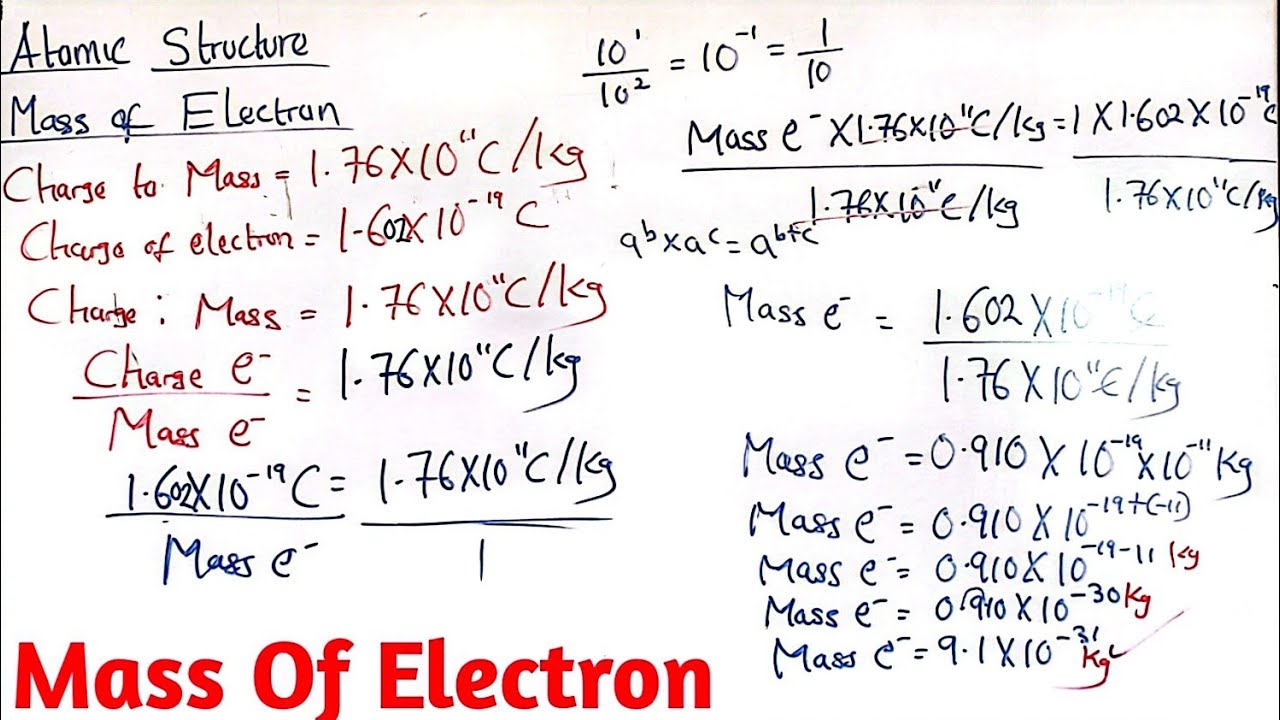 Atomic Structure
Mass of Electron
Charge to Mass = 1.76X10¹¹C/kg
Charge of electron = 1.602X10⁻¹⁹ C
Charge : Mass = 1.76X10¹¹C/kg
Charge e⁻ = 1.76X10¹¹C/kg
Mass e⁻
1.602X10⁻¹⁹C = 1.76X10¹¹C/kg
Mass e⁻ 1
10¹ = 10⁻¹ = 1
10² 10
Mass e⁻ X 1.76X10¹¹C/kg = 1 X 1.602 X 10⁻¹⁹C
1.76X10¹¹C/kg 1.76X10¹¹C/kg
aᵇ x aᶜ = aᵇ⁺ᶜ
Mass e⁻ = 1.602 X 10⁻¹⁹ C
1.76 X 10¹¹C/kg
Mass e⁻ = 0.910 X 10⁻¹⁹ X 10⁻¹¹ Kg
Mass e⁻ = 0.910 X 10⁻¹⁹⁺⁽⁻¹¹⁾
Mass e⁻ = 0.910X10⁻¹⁹⁻¹¹ Kg
Mass e⁻ = 0.910X10⁻³⁰ Kg
Mass e⁻ = 9.1X10⁻³¹ Kg
Mass Of Electron